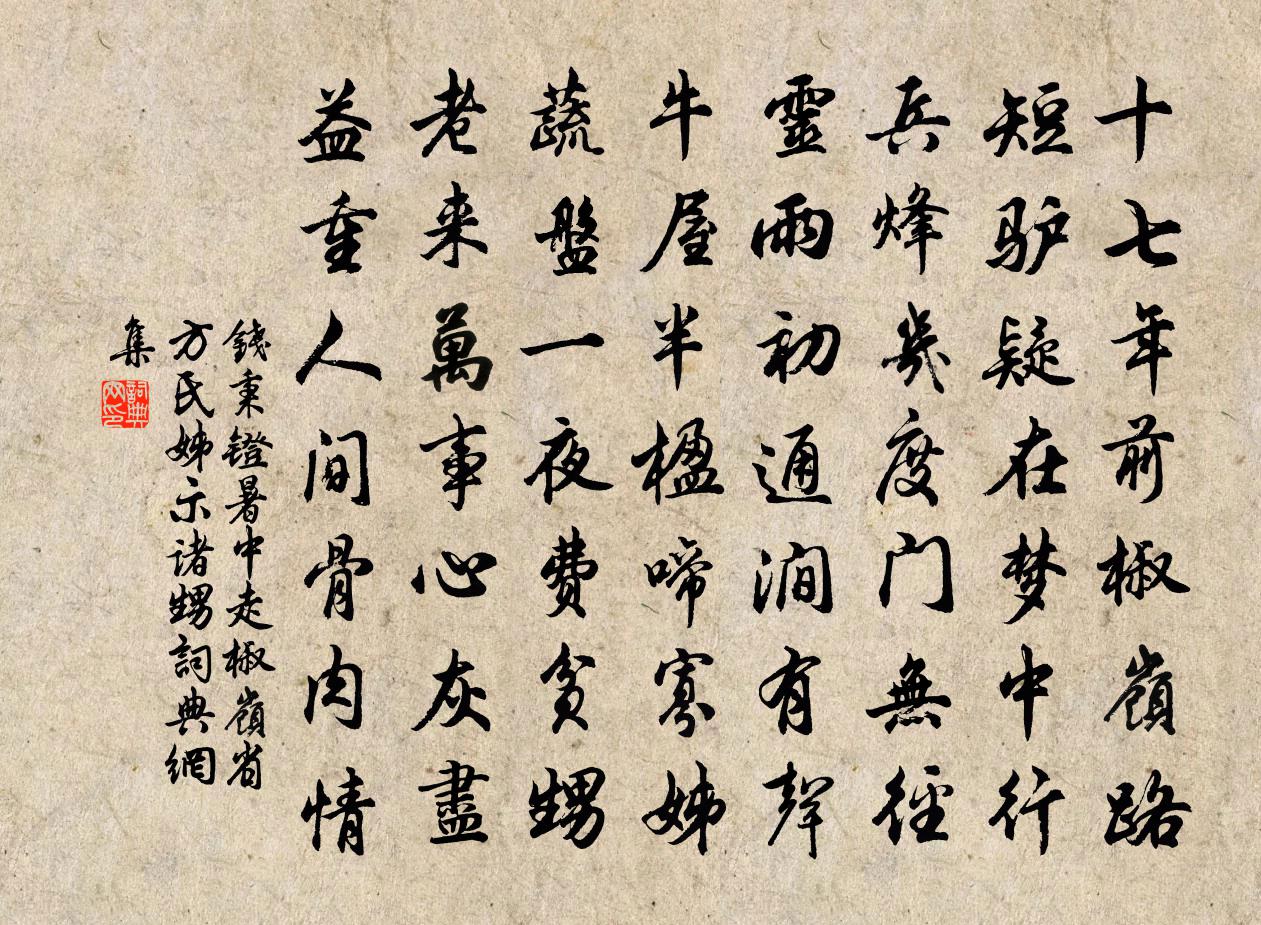 十七年前椒嶺路
短驴疑在梦中行
兵烽幾度门無徑
靈雨初通澗有聲
牛屋半楹啼寡姊
蔬盤一夜費貧甥
老来萬事心灰盡
益重人间骨肉情
錢秉鐙暑中走椒嶺省
方氏姊示诸甥詞典網
集
詞典网印